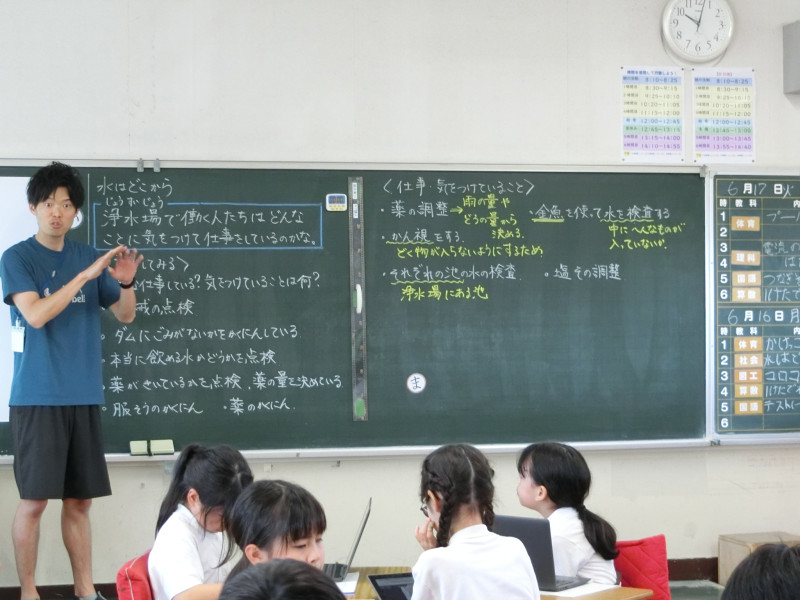 水はどこから
じょうすいじょう
浄水場で働く人たちは どんな
ことに気をつけて仕事をしているのかな。
てみる〉
仕事している? 気をつけていることは何?
の点検
・ダムにごみがないかをかくにんしている
・本当に飲める水かどうかを点検
・薬がきいているかを点検、薬の量を決めている
・服そうのかくにん ・薬のかくにん.
〈仕事・気をつけていること〉
・薬の調整→雨の量や
どろの量から
決める.
・かん視をする.
どく物が入らないようにするため!
・それぞれの池の水の検査.
浄水場にある池
・金魚を使って水を検査する
中にへんなものが
入っていないか.
・塩その調整
ま
bell
8:10~8:25
8:30~9:15
9:25~10:10
10:20~11:05
12:00~12:45
6月17日火
時 教科
1
2
体育
プール
3
理科
電流の
4
国語
5
算数
6
6月16日月
時 教科
1
体育
2
社会
水はど
3
図工
コロコロ
4
算数
5
国語
テスト
6